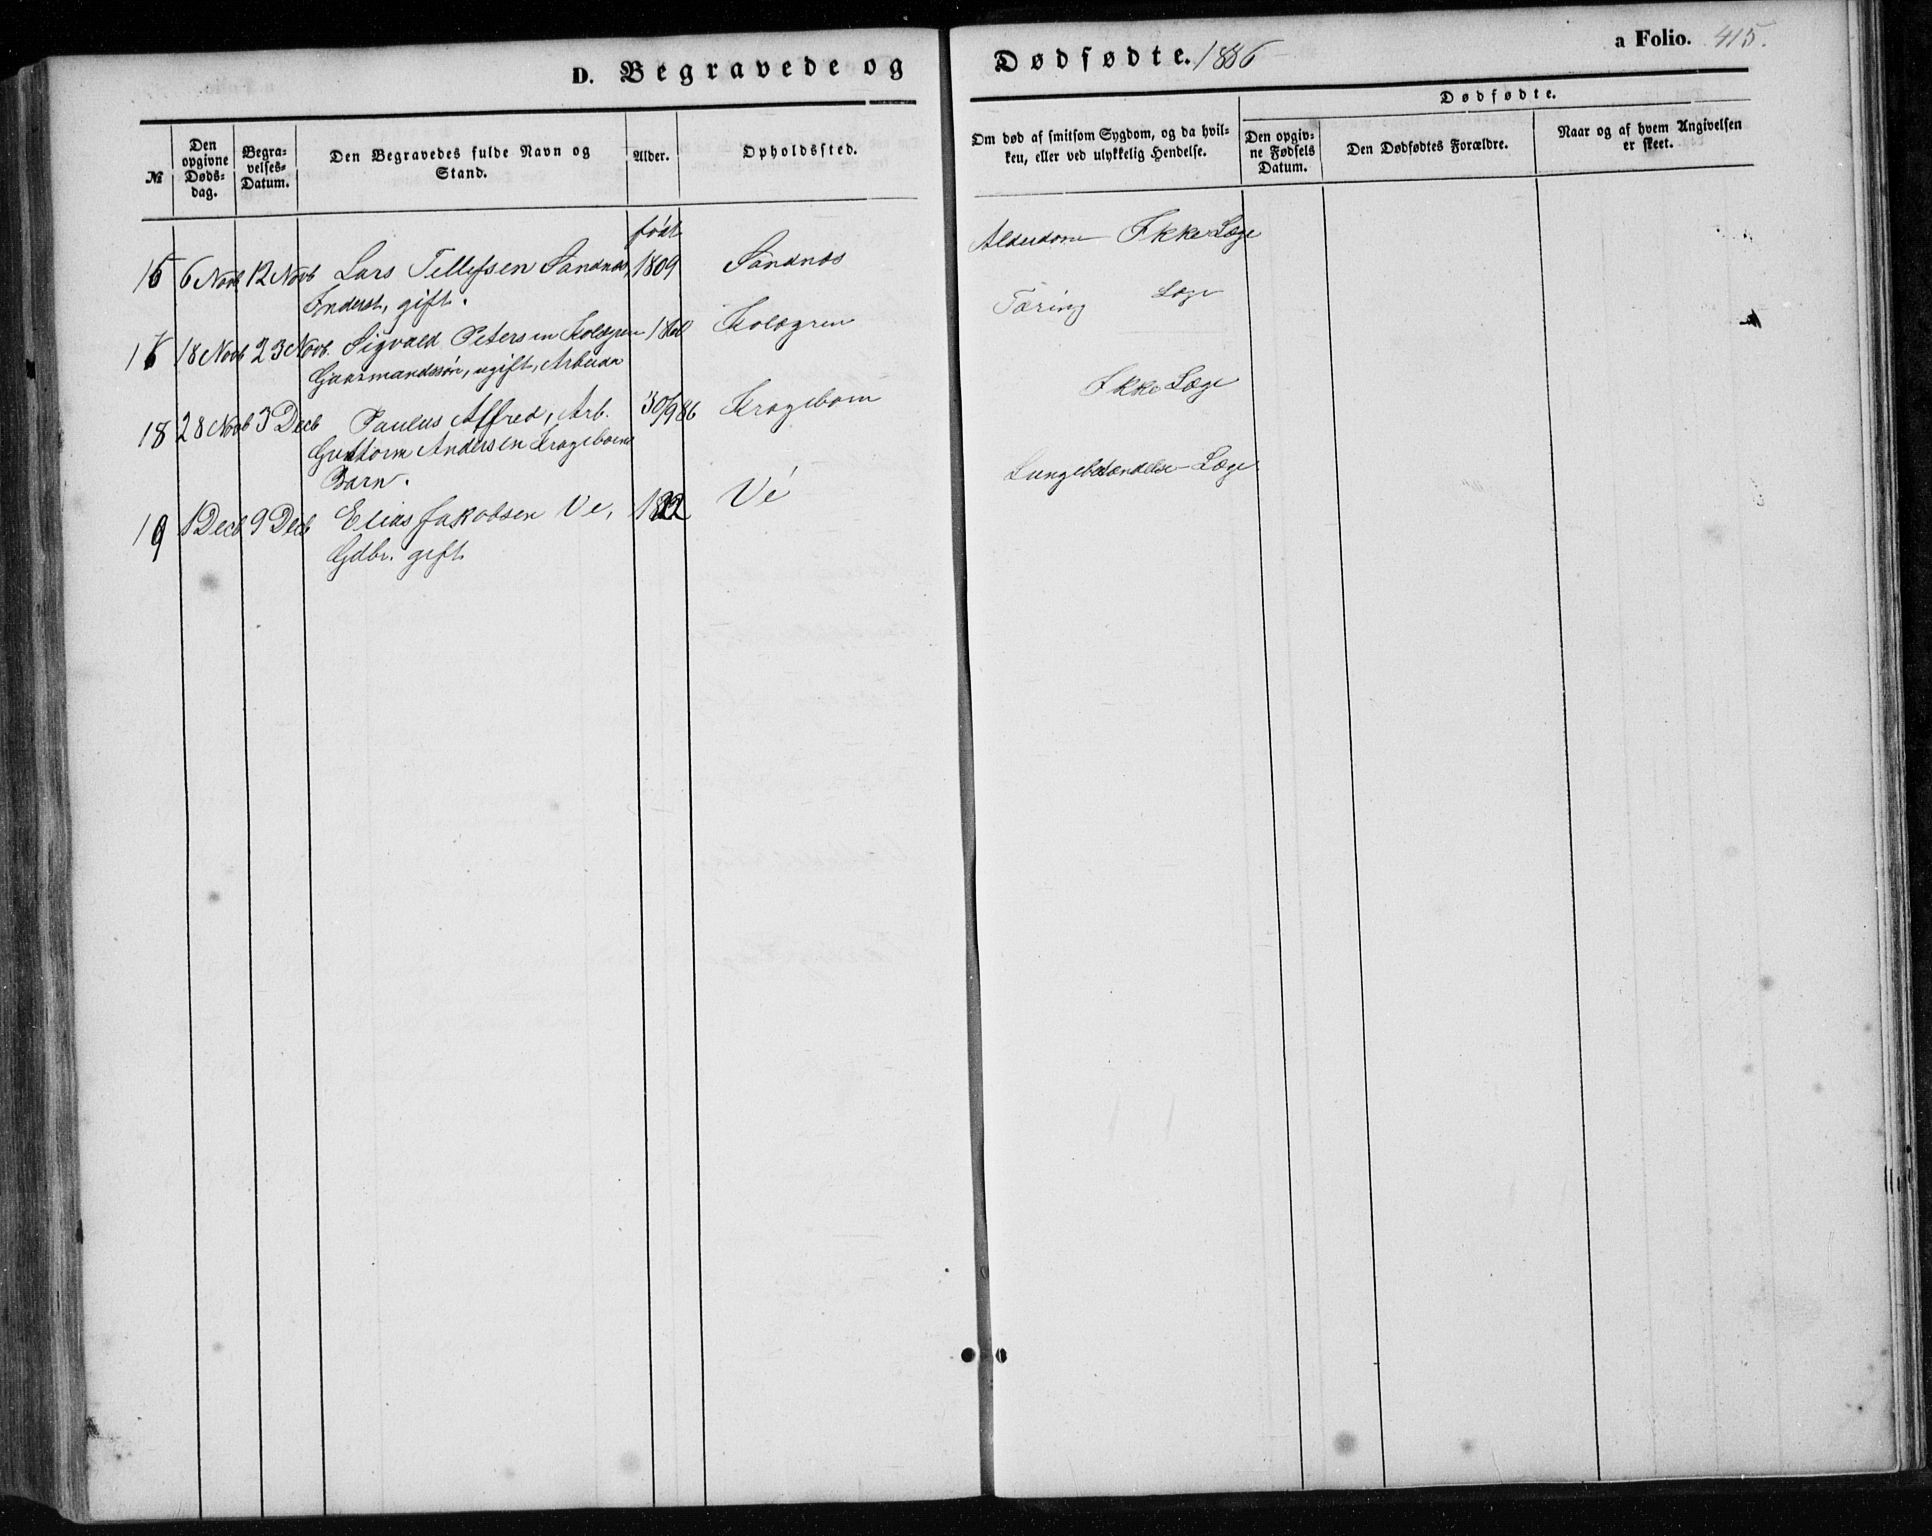 D. Begravede og Dødfødte. 1886 a Folio. 415.
№
Den opgivne Døds-dag.
Begra-velses-Datum.
Den Begravedes fulde Navn og Stand.
Alder.
Opholdssted.
Om død af smitsom Sygdom, og da hvil-ken, eller ved ulykkelig Hendelse.
Dødfødte.
Den opgiv-ne Fødsels Datum.
Den Dødfødtes Forældre.
Naar og af hvem Angivelsen er skeet.
født
6 Novb 12 Novb Lars Tellefsen Sandnæs, 1809 Sandnæs Alderdom Ikke Læge
Inderst, gift.
18 Novb 23 Novb. Sigvald Petersen Tæring Læge
Gaardmandssøn, ugift, Arbeider
18 28 Novb 3 Decb Paulus Alfred, Arb. 30/9 86 Kragebom Ikke Læge
Guttorm Andersen Krageboens
Barn.
19 1 Decb 9 Decb Elias Jakobsen Ve, 1822 Vé Lungebetændelse - Læge
Gdbr. gift